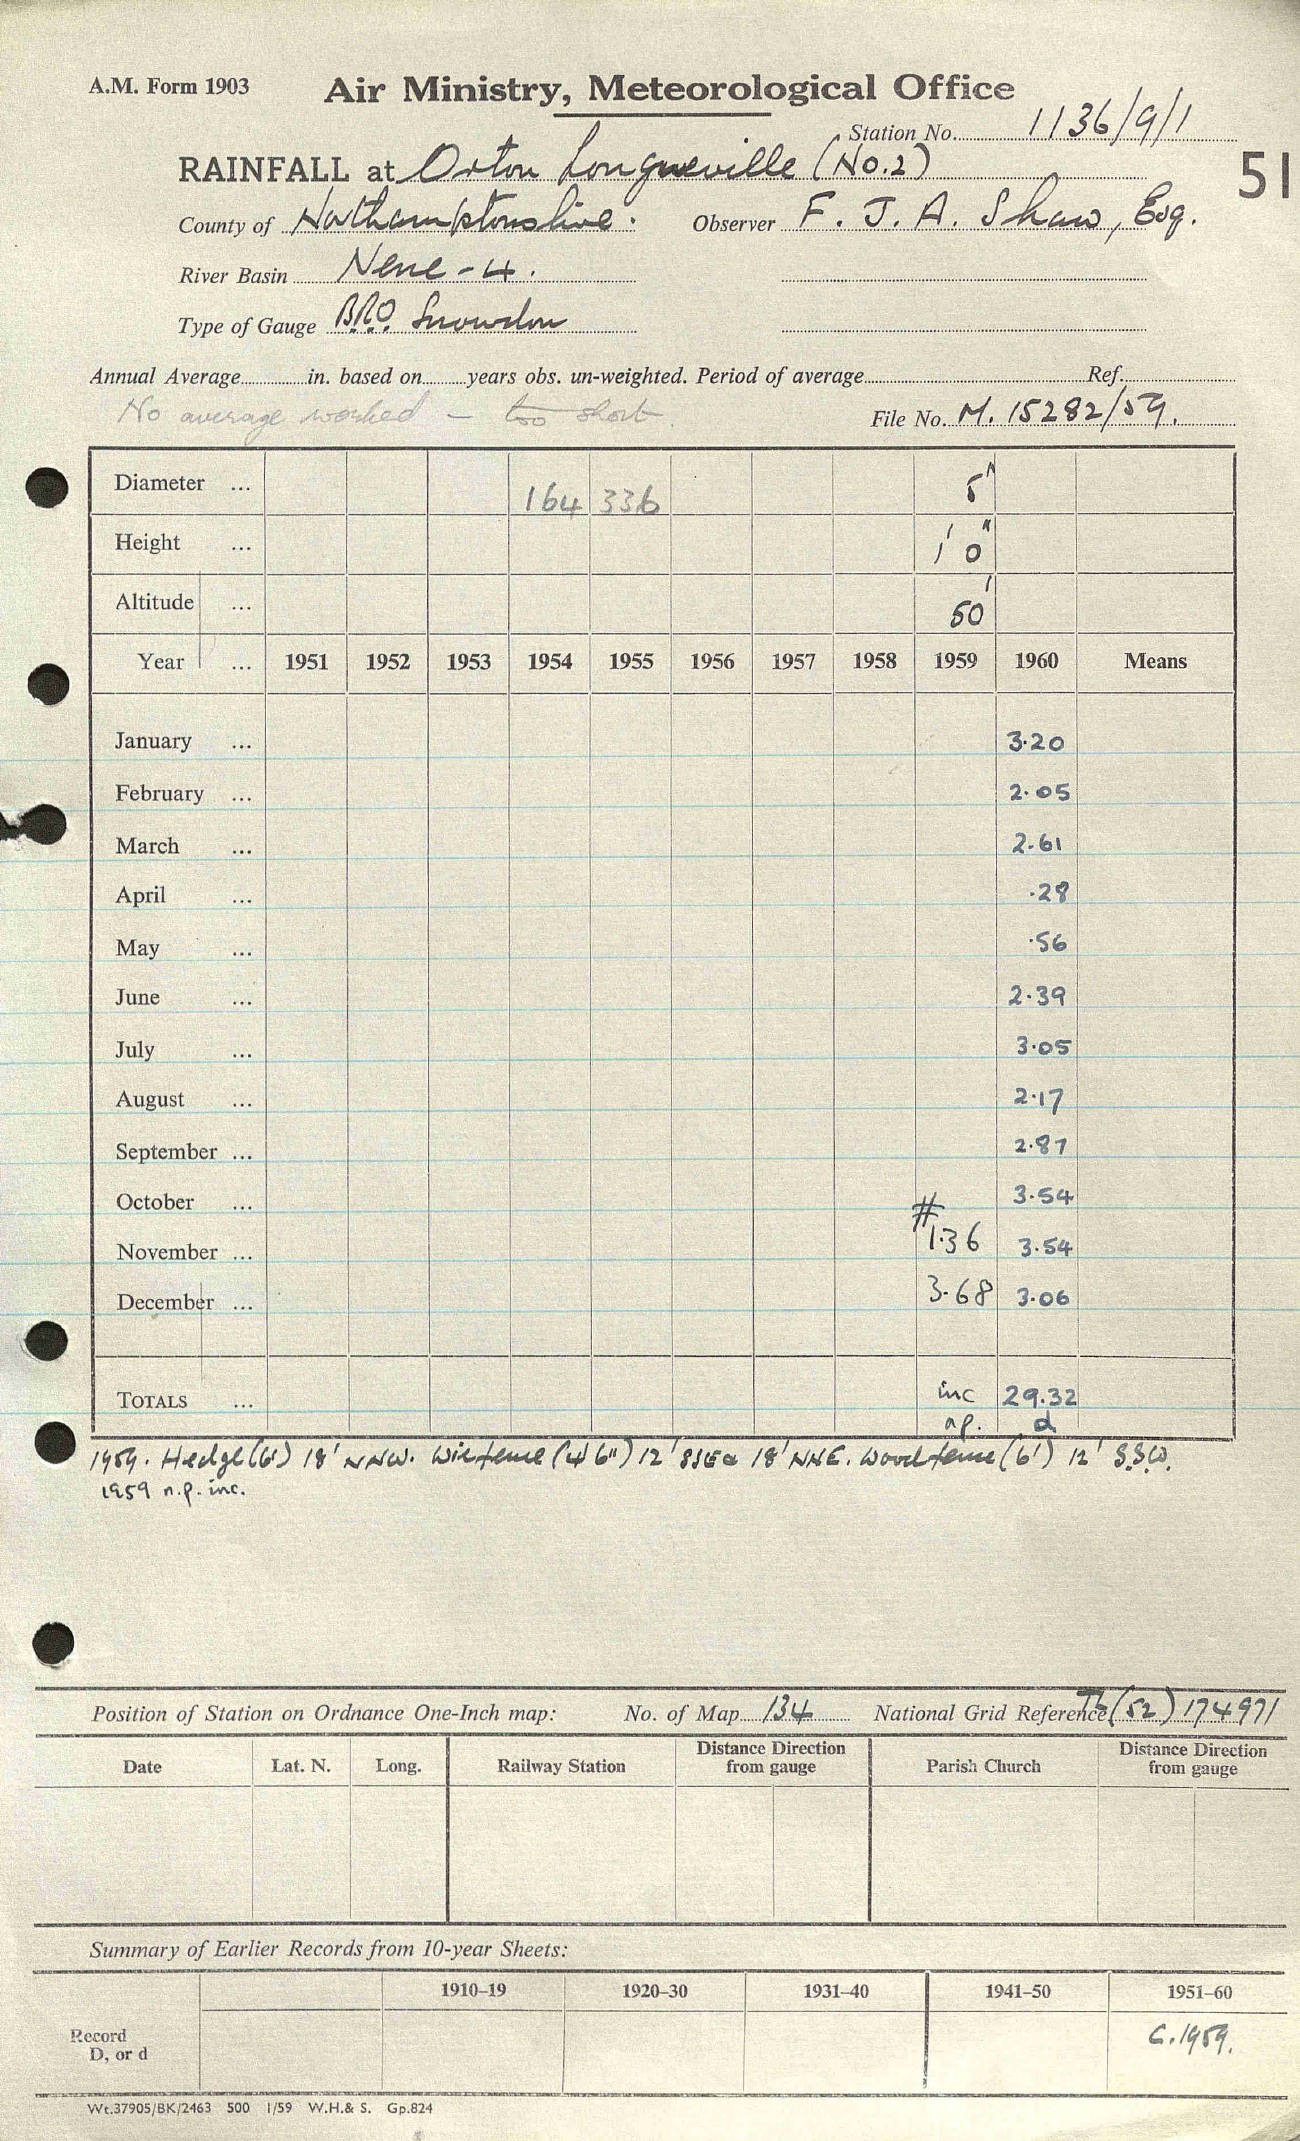 A.M. Form 1903 Air Ministry, Meteorological Office
Station No. 1136/9/1
RAINFALL at Orton Longueville (No.2) 51
County of Northamptonshire. Observer F. J. A. Shaw, Esq.
River Basin Nene - 4.
Type of Gauge B.R.O. Snowdon
Annual Average in. based on years obs. un-weighted. Period of average Ref.
No average worked - too short. File No. M. 15282/59.
Diameter ... 164 336 5"
Height ... 1' 0"
Altitude ... 50'
Year ... 1951 1952 1953 1954 1955 1956 1957 1958 1959 1960 Means
January ... 3.20
February ... 2.05
March ... 2.61
April ... .28
May ... .56
June ... 2.39
July ... 3.05
August ... 2.17
September ... 2.87
October ... # 3.54
November ... 1.36 3.54
December ... 3.68 3.06
TOTALS ... inc 29.32
n.p. d
1959. Hedge (6') 18' NNW. Wire fence (4' 6") 12' SSE & 18' NNE. Wood fence (6') 12' S.S.W.
1959 n.p. inc.
Position of Station on Ordnance One-Inch map: No. of Map 134 National Grid Reference (52) 174971
Date Lat. N. Long. Railway Station Distance Direction from gauge Parish Church Distance Direction from gauge
Summary of Earlier Records from 10-year Sheets:
1910–19 1920–30 1931–40 1941–50 1951–60
Record
D, or d C.1959.
Wt.37905/BK/2463 500 1/59 W.H.& S. Gp.824